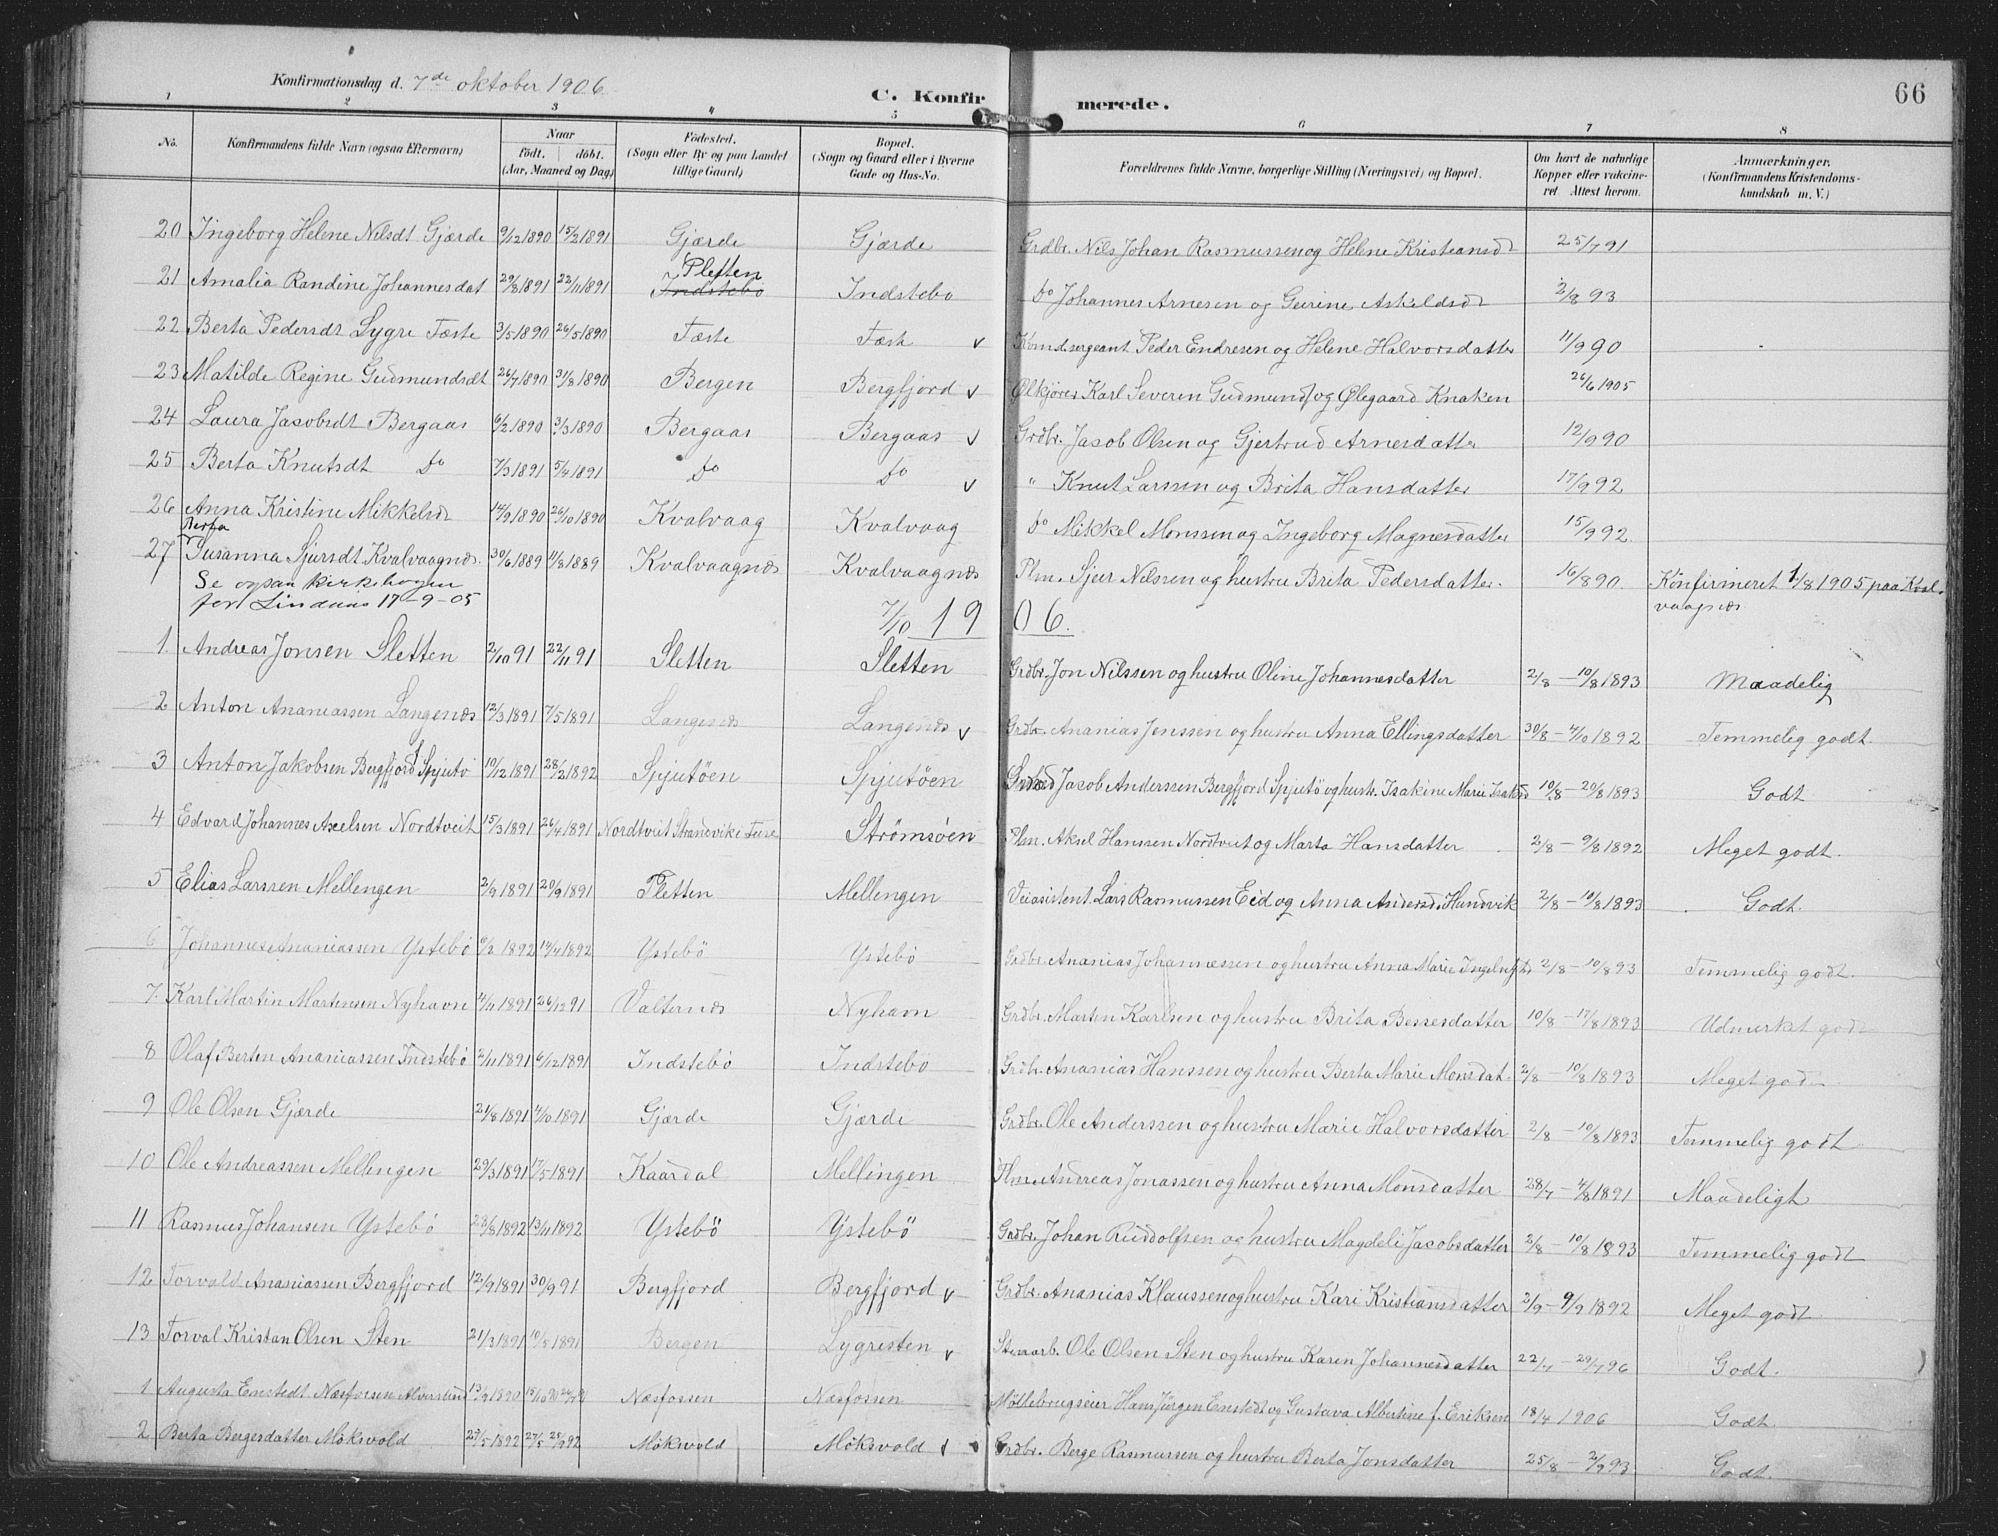 Konfirmationsdag d. 7de oktober 1906.
C. Konfirmerede.
66
1 2 3 4 5 6 7 8
No. Konfirmandens fulde Navn (ogsaa Efternavn) Naar födt. döbt. (Aar, Maaned og Dag) Födested. (Sogn eller By og paa Landet tillige Gaard) Bopæl. (Sogn og Gaard eller i Byerne Gade og Hus-No. Forældrenes fulde Navne, borgerlige Stilling (Næringsvei) og Bopæl. Om havt de naturlige Kopper eller vakcineret Attest herom. Anmærkninger. (Konfirmandens Kristendomskundskab m. V.)
20 Ingeborg Helene Nilsdt Gjærde 9/12 1890 15/2 1891 Gjærde Gjærde Grdbr. Nils Johan Rasmussen og Helene Kristiansd 25/7 91
21 Amalia Randine Johannesdat 29/8 1891 22/11 1891 Sletten Indstebo Indstebo do Johannes Arnesen og Geirine Askeldsdt 2/8 93
22 Berta Pedersdt Lygre Fæste 3/5 1890 26/5 1890 Fæste Fæste v Komd.sergeant Peder Endresen og Helene Halvorsdatter 11/9 90
23 Matilde Regine Gudmundsdt 26/7 1890 31/8 1890 Bergen Bergfjord v Ølkjörer Karl Severin Gudmunds og Ølegaard Knaken 26/6 1905
24 Laura Jacobsdt Bergaas 6/2 1890 3/3 1890 Bergaas Bergaas v Grdbr. Jacob Olsen og Gjertrud Arnesdatter 12/9 90
25 Berta Knutsdt do 7/3 1891 5/4 1891 do do v " Knut Larssen og Brita Hansdatter 17/9 92
26 Anna Kristine Mikkelsd 14/9 1890 26/10 1890 Kvalvaag Kvalvaag do Mikkel Monssen og Ingeborg Magnesdatter 15/9 92
27 Berta Susanna Sjursdt Kvalvaagnæs. 30/6 1889 4/8 1889 Kvalvaagnæs Kvalvaagnæs Plm. Sjur Nilssen og hustru Brita Pedersdatter. 16/8 90. Konfirmeret /8 1905 paa Kvalvaagnæs
Se ogsaa kirkebogen
for Lindaas 17-9-05
7/10 1906.
1 Andreas Jonsen Sletten 2/10 91 22/11 91 Sletten Sletten Grdbr. Jon Nilssen og hustru Oline Johannesdatter 2/8 – 10/8 1893 Maadelig
2 Anton Ananiassen Langenæs 12/3 1891 7/5 1891 Langenæs Langenæs v Grdbr. Ananias Jenssen og hustru Anna Ellingsdatter 30/8 – 4/10 1892 Temmelig godt.
3 Anton Jakobsen Bergfjord Spjutö 10/12 1891 28/2 1892 Spjutöen Spjutöen Jacob Anderssen Bergfjord Spjutö og hustr. Isakine Marie Isaksd 10/8 – 20/8 1893 Godt
4 Edvard Johannes Axelsen Nordtveit 15/3 1891 26/4 1891 Nordtveit Strandvik i Fuse Strømsöen Plm. Aksel Hanssen Nordtveit og Marta Hansdatter 2/8 – 9/8 1892 Meget godt.
5 Elias Larssen Mellengen 2/9 1891 20/9 1891 Sletten Mellengen Veiasistent. Lars Rasmussen Eid og Anna Andersd. Hundvik 2/8 – 10/8 1893 Godt.
6 Johannes Ananiassen Ystebö 6/3 1892 14/4 1892 Ystebö Ystebö Grdbr. Ananias Johannessen og hustru Anna Marie 2/8 – 10/8 93 Temmelig godt.
7 Karl Martin Martinsen Nyhavn 4/11 1891 26/12 91 Valternæs Nyhavn Grdbr. Marten Karlsen og hustru Brita Bessesdatter 10/8 – 17/8 1893 Udmerket godt
8 Olaf Berten Ananiassen Indstebö 2/11 1891 6/12 1891 Indstebö Indstebö Grdbr. Ananias Hanssen og hustru Berta Marie Monsdat. 2/8 – 10/8 1893 Meget god
9 Ole Olsen Gjærde 21/8 1891 4/10 1891 Gjærde Gjærde Grdbr. Ole Anderssen og hustru Marie Halvorsdatter 2/8 – 10/8 1893 Temmelig godt
10 Ole Andreassen Mellengen 29/3 1891 17/5 1891 Kaardal Mellingen Plm. Andreas Jonassen og hustru Anna Monsdatter 28/7 – 4/8 1891 Maadeligt
11 Rasmus Johansen Ystebö 28/8 1892 13/11 1892 Ystebö Ystebö Grdbr. Johan Ruddolfsen og hustru Magdeli Jacobsdatter 2/8 – 10/8 1893 Temmelig godt
12 Torvald Ananiassen Bergfjord 12/9 1891 30/9 91 Bergfjord Bergfjord v Grdbr. Ananias Klaussen og hustru Kari Kristiansdatter 2/9 – 9/9 1892 Meget godt
13 Torval Kristan Olsen Sten 21/3 1891 10/5 1891 Bergen Lygresten v Stenarb. Ole Olsen Sten og hustru Karen Johannesdatter 22/7 – 29/7 96 Godt.
1 Augusta Enstedt Næsfossen Alversund 13/9 1890 15/10 90 Næsfossen Næsfossen Möllebrugseier Hans Jürgen Enstedt og Gustava Albertine f. Eriksen 18/4 1906 Godt
2 Berta Bergesdatter Möksvold 27/5 1892 27/5 25/9 92 Möksvold Möksvold v Grdbr. Berge Rasmussen og hustru Berta Jonsdatter 25/8 – 2/9 93 Godt.